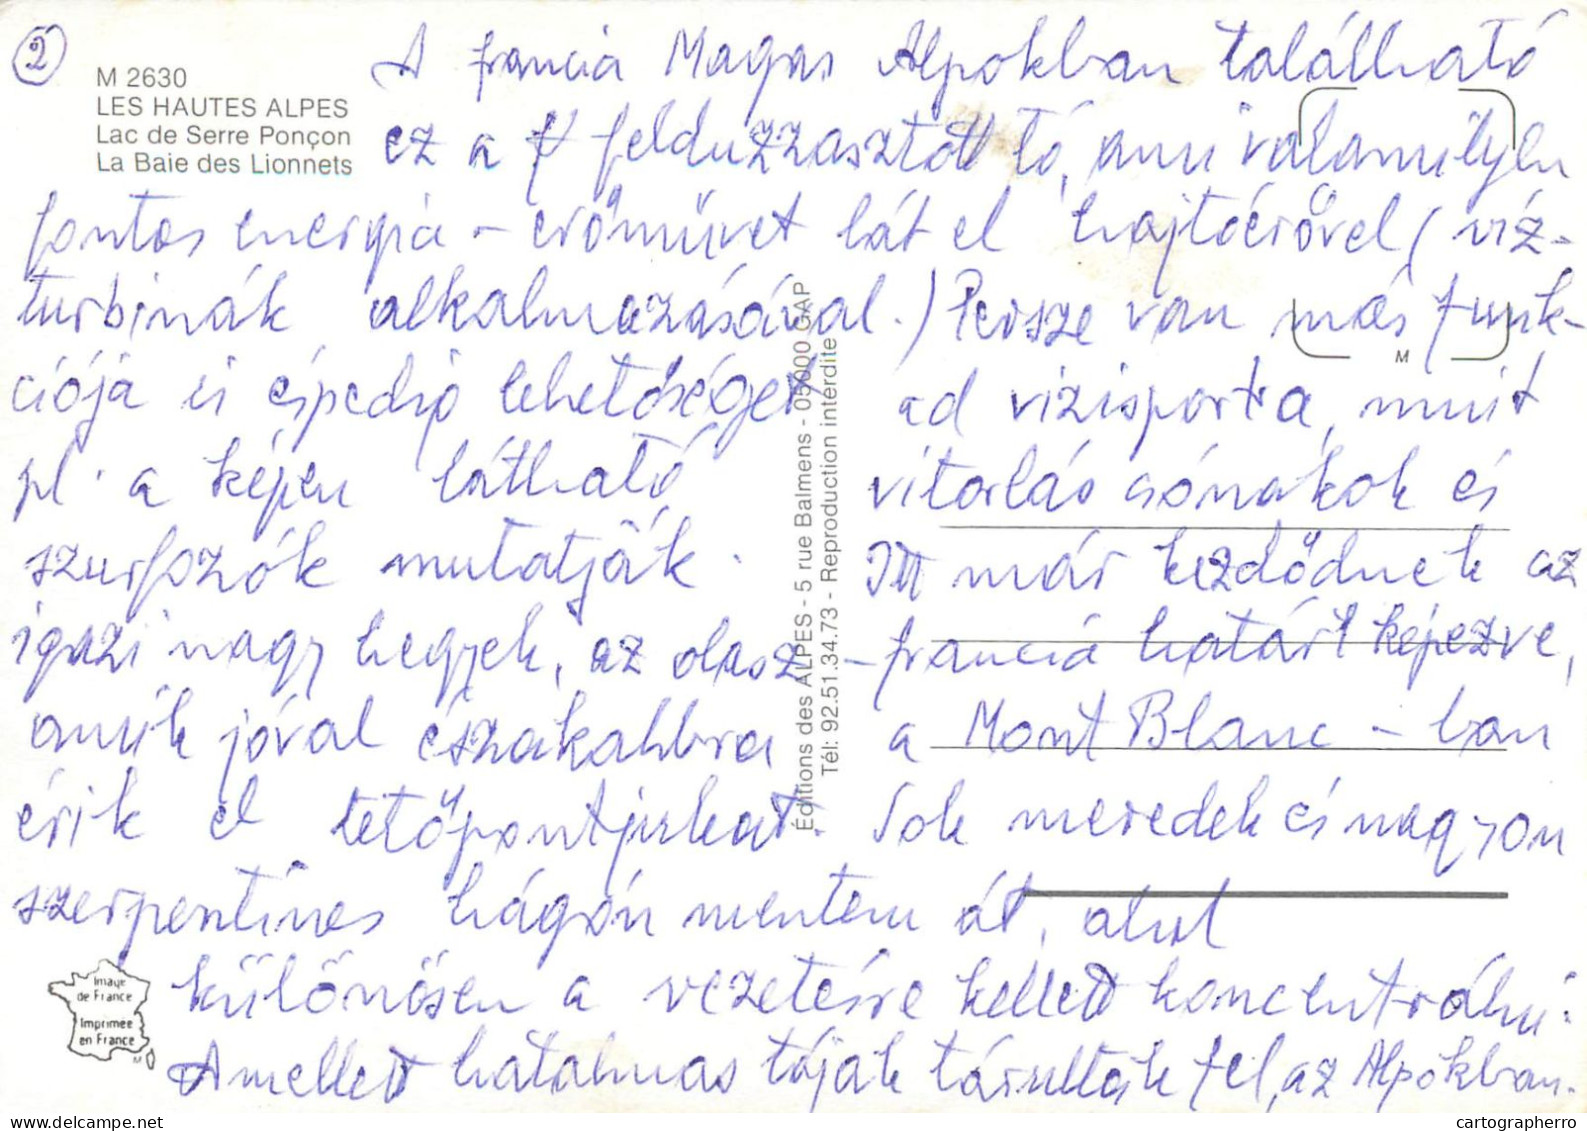 2
M 2630
LES HAUTES ALPES
Lac de Serre Ponçon
La Baie des Lionnets
A francia Magas Alpokban található
ez a felduzzasztott tó, ami valamilyen
fontos energia - erőművet lát el hajtóerővel (víz-
turbinák alkalmazásával.) Persze van más funk-
ciója is éspedig lehetőséget ad vizisportra, mint
pl. a képen látható vitorlás csónakok és
szurfozók mutatják. Itt már kezdődnek az
igazi nagy hegyek, az olasz - francia határt képezve,
amik jóval északabbra a Mont Blanc - ban
érik el tetőpontjukat. Sok meredek és nagyon
szerpentines hágón mentem át, ahol
különösen a vezetésre kellett koncentrálni.
Amellett hatalmas tájak tárultak fel, az Alpokban.
Éditions des ALPES - 5 rue Balmens - 05000 GAP
Tél: 92.51.34.73 - Reproduction interdite
M
Image
de France
Imprimée
en France
cartographerro